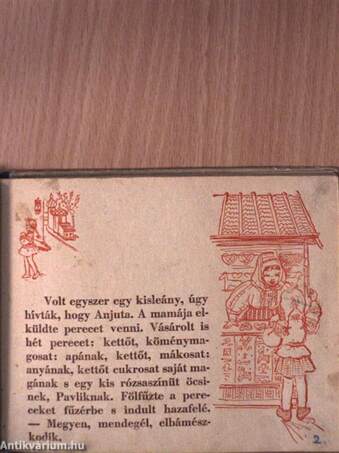 Volt egyszer egy kisleány, úgy
hívták, hogy Anjuta. A mamája el-
küldte perecet venni. Vásárolt is
hét perecet: kettőt, köményma-
gosat: apának, kettőt, mákosat:
anyának, kettőt cukrosat saját ma-
gának s egy kis rózsaszínűt öcsi-
nek, Pavliknak. Fölfűzte a pere-
ceket fűzérbe s indult hazafelé.
— Megyen, mendegél, elbámész-
kodik.
2.
Antikvarium.hu